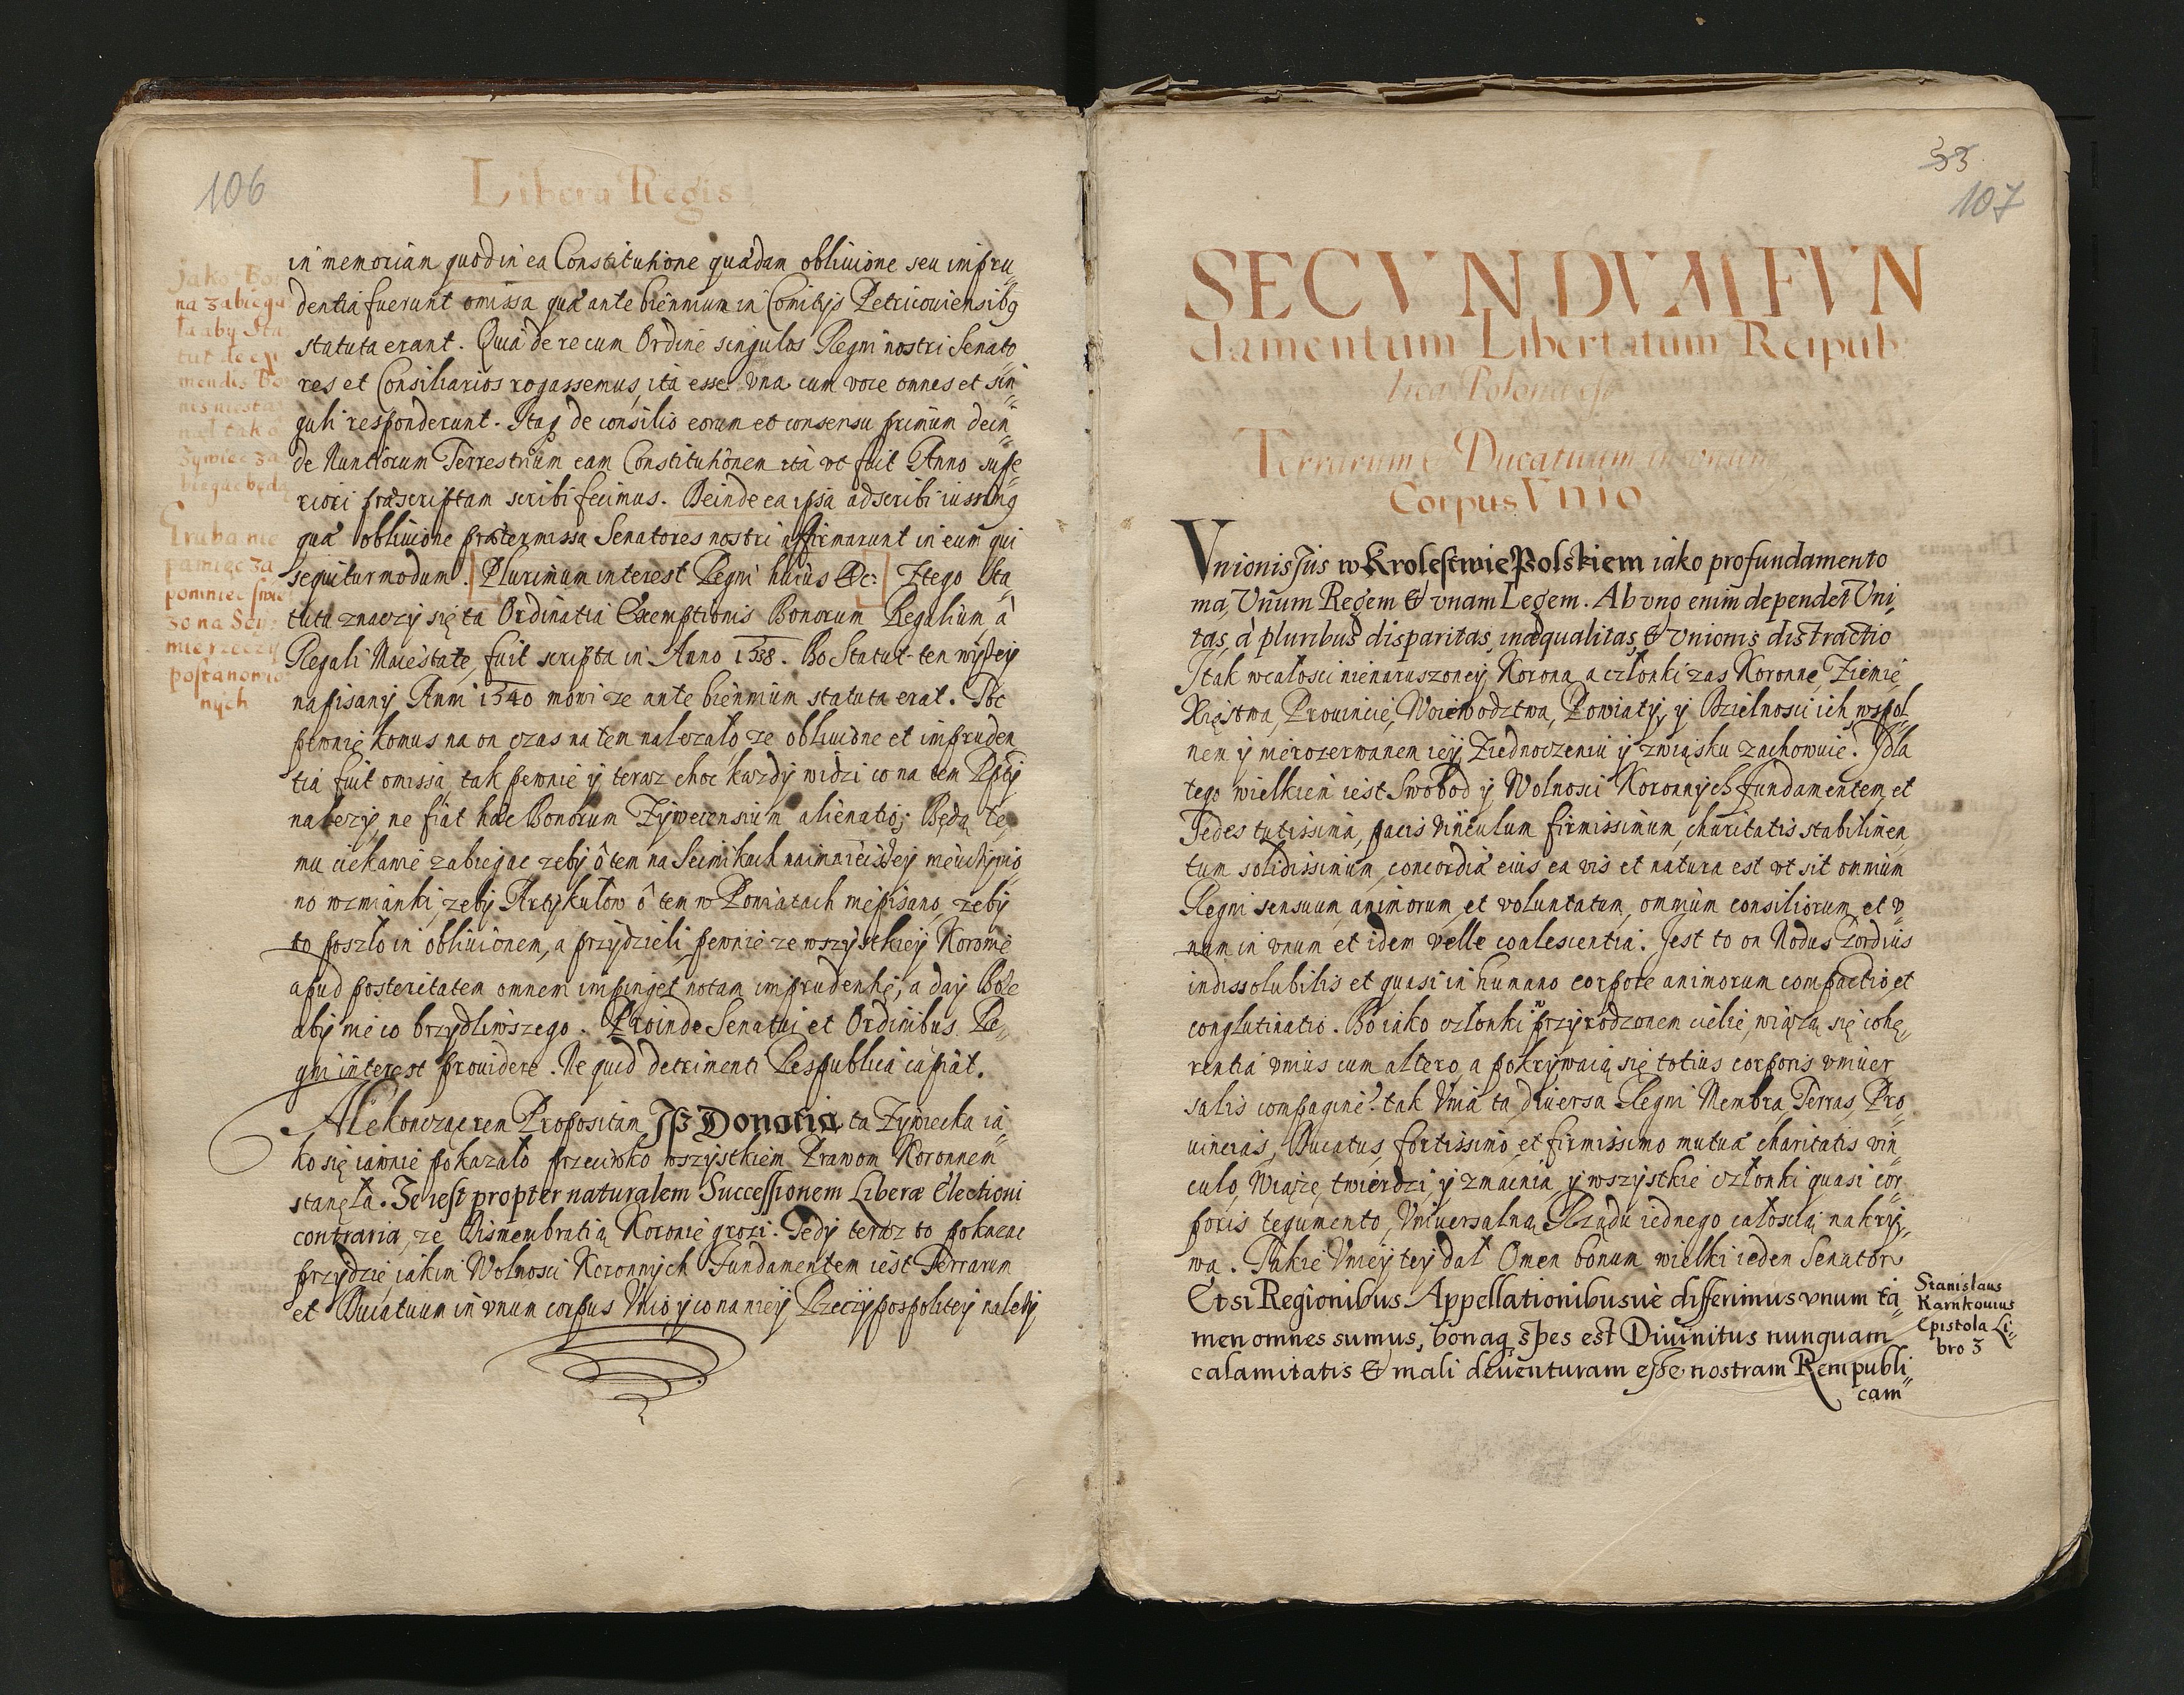 106
Libera Regis
Jako Bo
na zabiega
ła aby Sta
tut de exi
mendis Bo
nis niestá
nął tak o
Żywiec za
biegac będą
Gruba nie
pamięc za
pomniec swie
zo na Sey:
mie rzeczy
postanowio
nych
in memoriam quod in ea Constitutione quadam obliuione seu impru„
dentia fuerunt omissa quæ ante biennium in Comitijs Petricouiensibq
statuta erant. Qua de re cum Ordine singulos Regni nostri Senato„
res et Consiliarios rogassemus, ita esse vna cum voce omnes et sin„
guli responderunt. Itaq de consilio eorum et consensu primum dein„
de Nuntiorum Terrestrium eam Constitutionem ita vt fuit Anno supe„
riori præscriptam scribi fecimus. Deinde ea ipsa adscribi iussimq
quæ obliuione prætermissa Senatores nostri affirmarunt in eum qui
sequitur modum. Plurimum interest Regni huius &c: Z tego Sta„
tutu znaczy się ta Ordinatia Exemptionis Bonorum Regalium à
Regali Maiestate, fuit scripta in Anno 1538. Bo Statut ten wyszey
napisany Anni 1540 mowi ze ante biennium statuta erat. Toc
pewnie komus na on czas na tem nalezało ze obliuione et impruden„
tia fuit omissa, tak pewnie y teraz choc kazdy widzi co na tem Rptey
nalezy, ne fiat hæc Bonorum Zywecensium alienatio; Będą te„
mu ciekawie zabiegac zeby ô tem na Seimikach naimnieiszey nieuczynio„
no wzmianki, zeby Artykułow ô tem w Powiatach niepisano, zeby
to poszło in obliuionem, a przydzieli, pewnie ze wszystkiey Koronie
apud posteritatem omnem impinget notam imprudentiæ, a day Boze
aby nie co brzydliwszego. Proinde Senatui et Ordinibus Re„
gni interest prouidere. Ne quid detrimenti Respublica capiat.
Ale koncząc rem Propositam Jż Donatia ta Zywiecka ia„
ko się iawnie pokazało przeciwko wszystkiem Prawom Koronnem
stanęła. Ze iest propter naturalem Successionem Liberæ Electioni
contraria, ze Dismembratią Koronie grozi. Tedy teraz to pokazac
przydzie iakim Wolnosci Koronnych Fundamentem iest Terrarum
et Ducatuum in vnum corpus Vnio, y co na niey Rzeczypospolitey nalezy
33
107
SECVNDVM FVN
damentum Libertatum Reipub
licæ Polonæ est
Terrarum & Ducatuum in vnum
Corpus Vnio
Vnionis Jus w Krolestwie Polskiem iako pro fundamento
ma, Vnum Regem & vnam Legem. Ab vno enim dependet Vni„
tas, à pluribus disparitas, inæqualitas, & vnionis distractio
I tak w całosci nienaruszoney Korona a członki zas Koronne, Ziemie,
Xięstwa, Prouincie, Woiewodztwa, Powiaty, y Dzielnosci ich, wspol„
nem y nierozerwanem iey Ziednoczeniu y związku zachowuie. Y dla
tego wielkiem iest Swobod y Wolnosci Koronnych fundamentem, et
Sedes tutissima, pacis vinculum firmissimum, charitatis stabilimen„
tum solidissimum, concordiæ eius ea vis et natura est vt sit omnium
Regni sensuum, animorum et voluntatum, omnium consiliorum, et v„
num in vnum et idem velle coalescentia. Jest to on Nodus Gordius
indissolubilis et quasi in humano corpore animorum compactio, et
conglutinatio. Bo iako członki w przyrodzonem ciele, wiążą się cohę„
rentia vnius cum altero, a pokrywaią się totius corporis vniuer
salis compagine: tak Vnia ta diuersa Regni Membra, Terras, Pro„
uincias, Ducatus, fortissimo, et firmissimo mutuæ charitatis vin„
culo, Wiąże, twierdzi, y zmacnia, y wszystkie członki quasi cor„
poris tegumento, Vniuersalną Rządu iednego całoscią nakry„
wa. Takie Vniey tey dał Omen bonum wielki ieden Senator
Etsi Regionibus Appellationibusuè differimus vnum ta„
men omnes sumus, bonaq spes est Diuinitus nunquam
calamitatis & mali deuenturam esse nostram Rempubli„
cam
Stanislaus
Karnkouius
Epistola Li„
bro 3